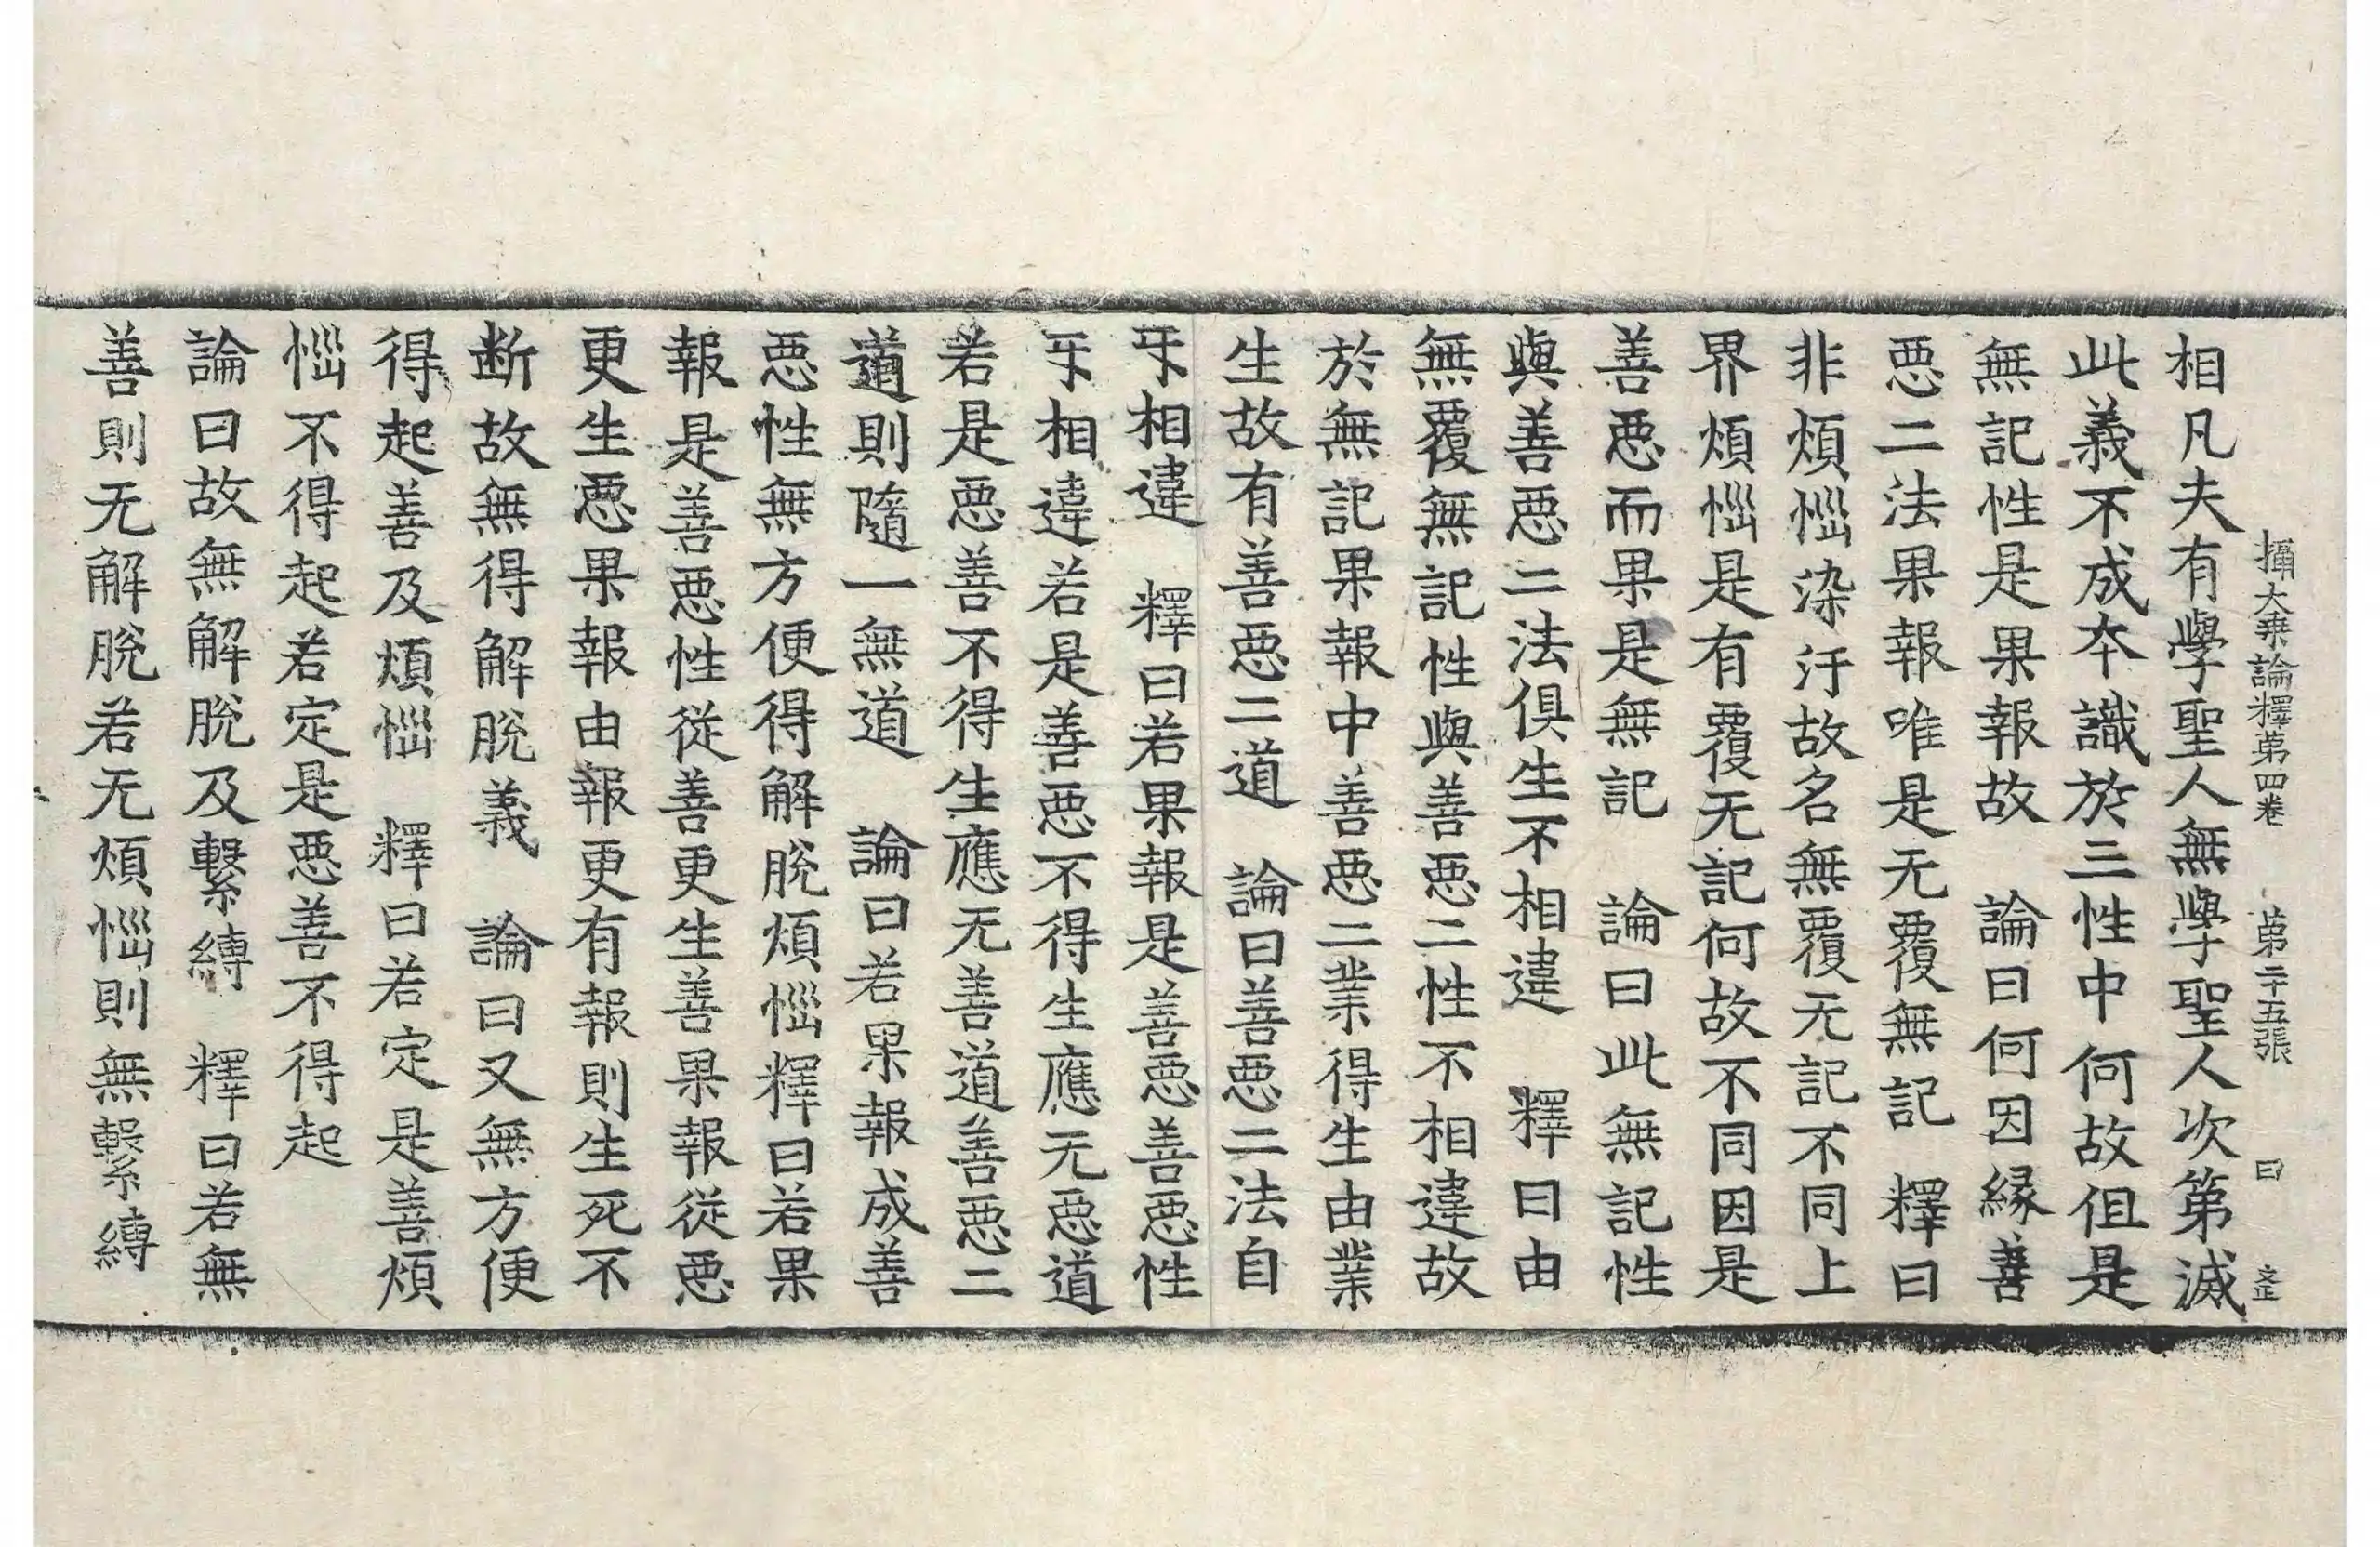 攝大乗論釋第四卷 第二十五張 曰 𡵆
相凡夫有學聖人無學聖人次第滅
此義不成夲識於三性中何故伹是
無記性是果報故 論曰何因縁善
惡二法果報唯是无覆無記 釋曰
非煩惱染汙故名無覆无記不同上
界煩惱是有覆无記何故不同因是
善惡而果是無記 論曰此無記性
與善惡二法俱生不相違 釋曰由
無覆無記性與善惡二性不相違故
於無記果報中善惡二業得生由業
生故有善惡二道 論曰善惡二法自
㸦相違 釋曰若果報是善惡善惡性
㸦相違若是善惡不得生應无惡道
若是惡善不得生應无善道善惡二
道則隨一無道 論曰若果報成善
惡性無方便得解脫煩惱釋曰若果
報是善惡性從善更生善果報從惡
更生惡果報由報更有報則生死不
断故無得解脫義 論曰又無方便
得起善及煩惱 釋曰若定是善煩
惱不得起若定是惡善不得起
論曰故無解脫及繫縛 釋曰若無
善則无解脫若无煩惱則無繫縛